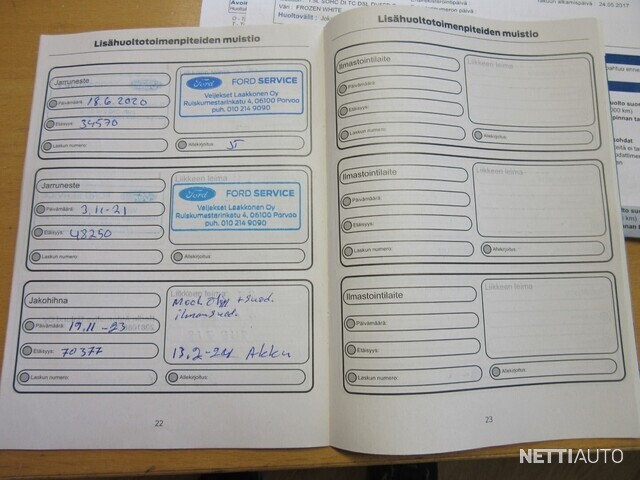 1.5L SOHC DI TC DSL
Väri : FROZEN WHITE
24.05.2017
Lisähuoltotoimenpiteiden muistio
Jarruneste
Päivämäärä: 18.6.2020
Etäisyys: 34570
Laskun numero:
Ford FORD SERVICE
Veljekset Laakkonen Oy
Ruiskumestarinkatu 4, 06100 Porvoo
puh. 010 214 9090
Allekirjoitus:
Jarruneste
Päivämäärä: 3.11-21
Etäisyys: 48250
Laskun numero:
Liikkeen leima
Ford FORD SERVICE
Veljekset Laakkonen Oy
Ruiskumestarinkatu 4, 06100 Porvoo
puh. 010 214 9090
Allekirjoitus:
Jakohihna
Päivämäärä: 19.11-23
Etäisyys: 70377
Laskun numero:
Liikkeen leima
+Suod.
ilmansuod.
Akku
Allekirjoitus:
22
Lisähuoltotoimenpiteiden muistio
Ilmastointilaite
Päivämäärä:
Etäisyys:
Laskun numero:
Liikkeen leima
Allekirjoitus:
Ilmastointilaite
Päivämäärä:
Etäisyys:
Laskun numero:
Liikkeen leima
Allekirjoitus:
Ilmastointilaite
Päivämäärä:
Etäisyys:
Laskun numero:
Liikkeen leima
Allekirjoitus:
23
NETTIAUTO